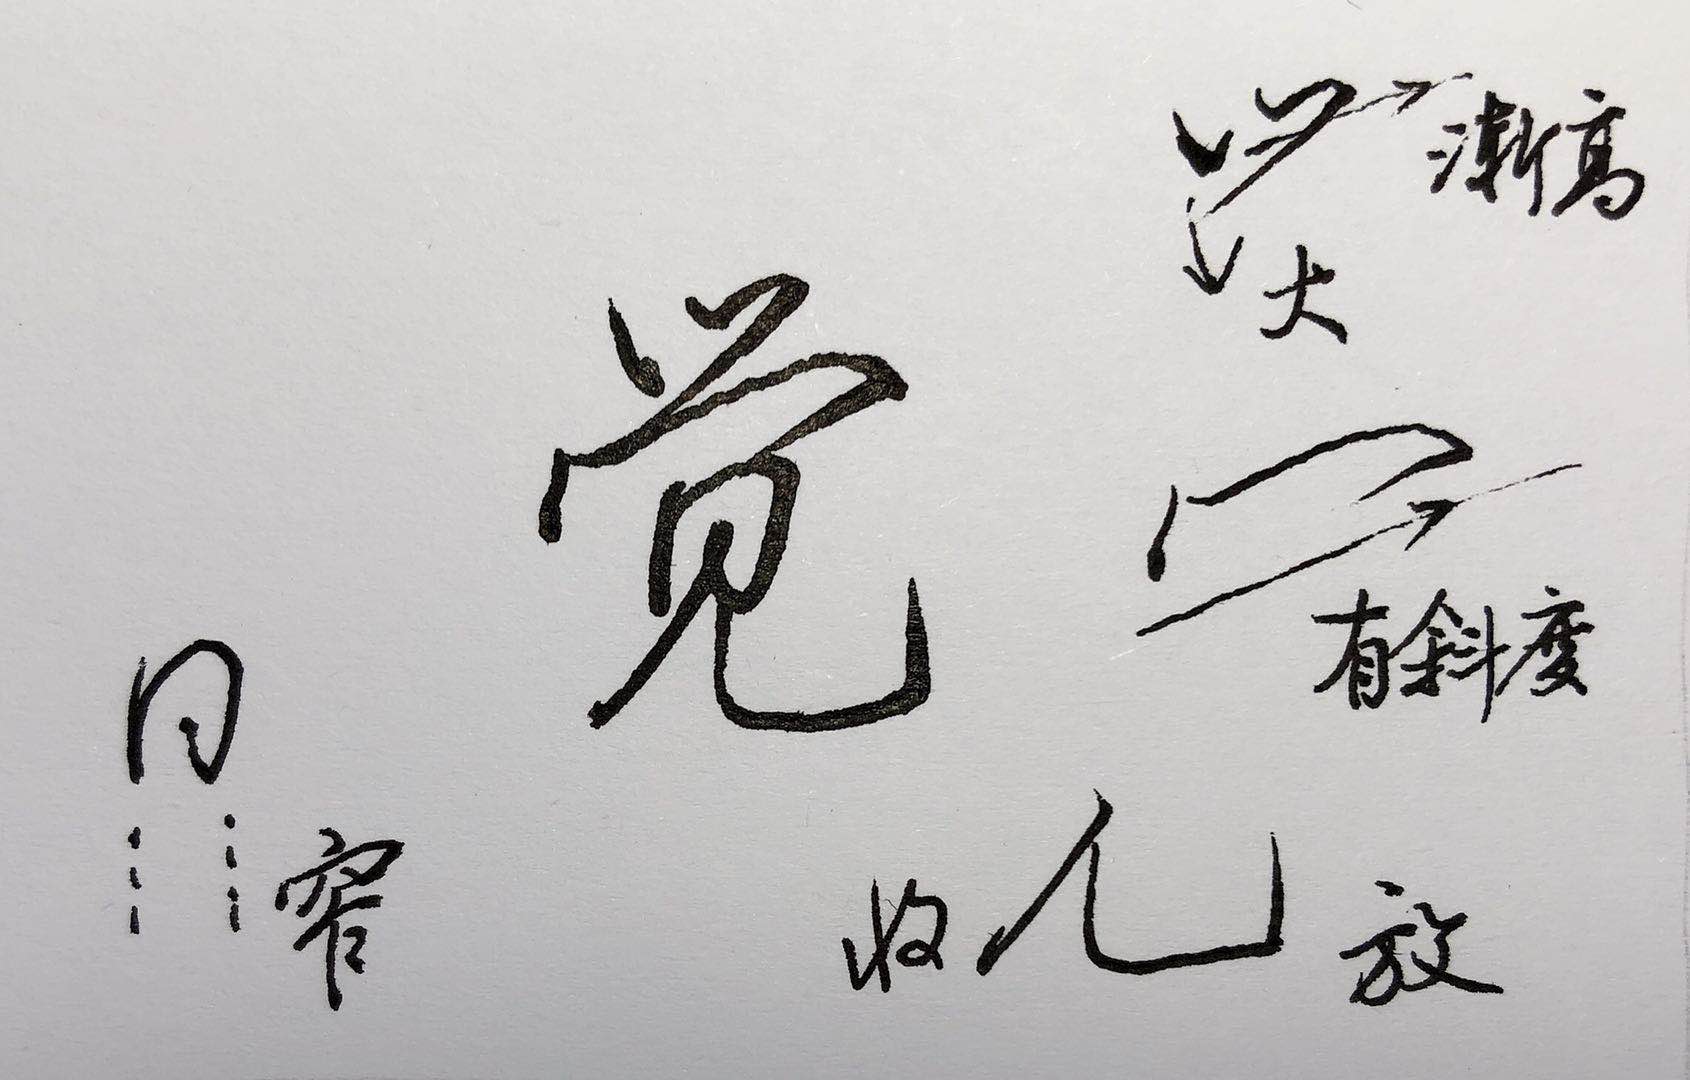 渐高
大
觉
有斜度
窄
收 放